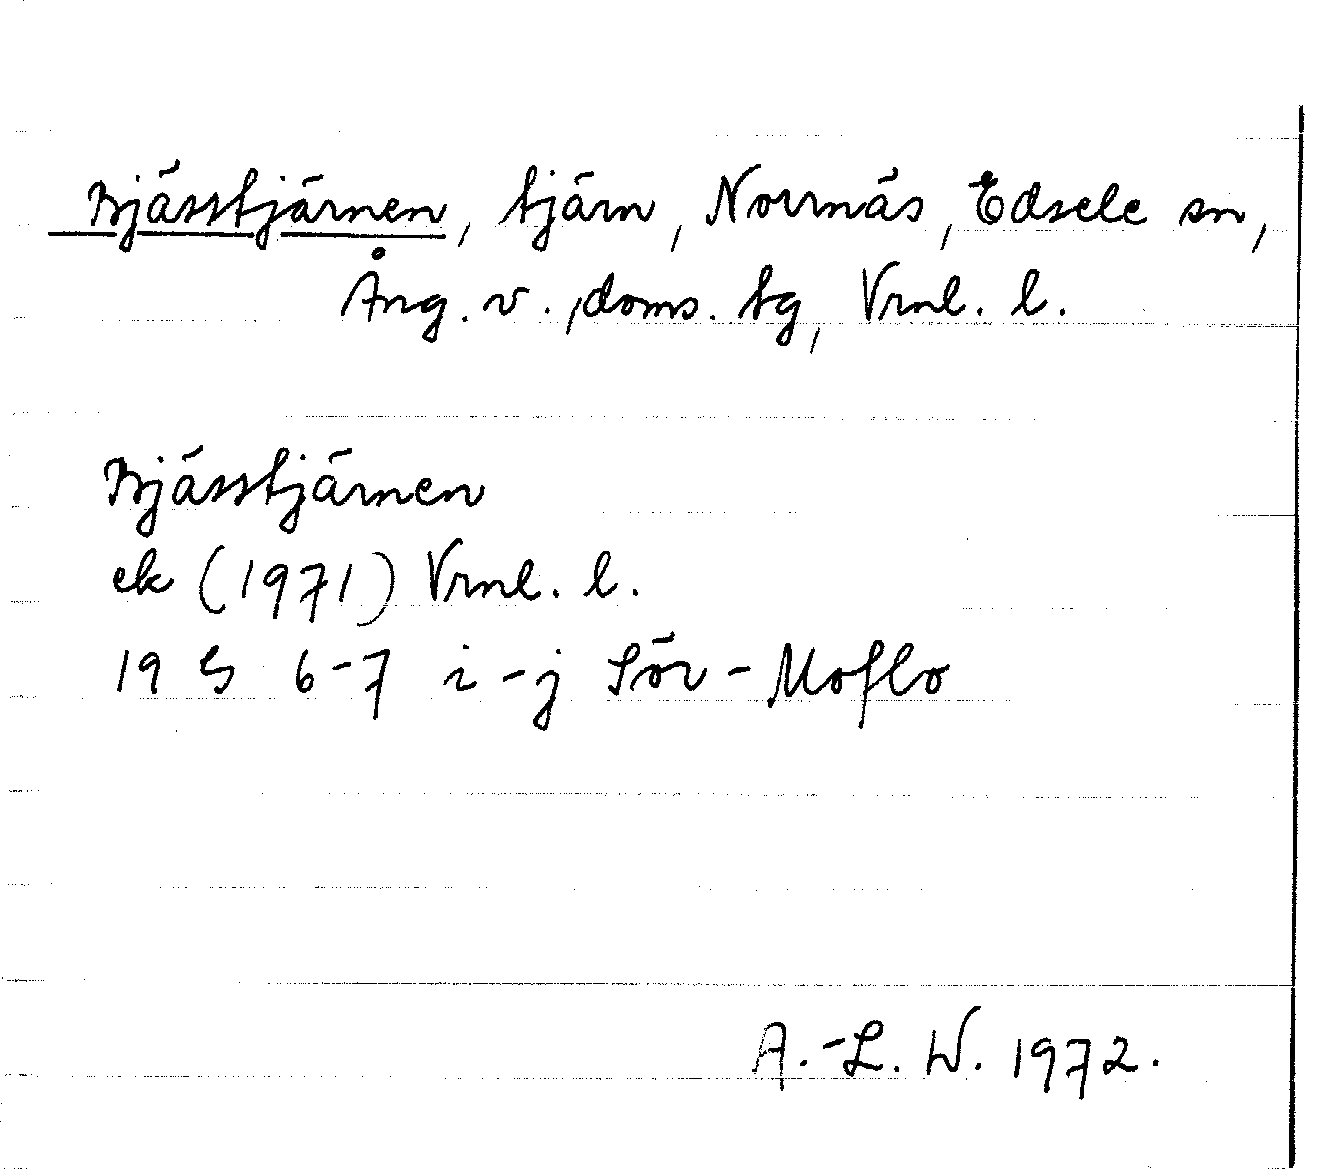 Bjässtjärnen, tjärn, Nornäs, Edsele sn,
Ång. v., doms. tg, Vrnl. l.
Bjässtjärnen
ek (1971) Vrnl. l.
19 G 6-7 i-j Sör-Moflo
A.-L. W. 1972.